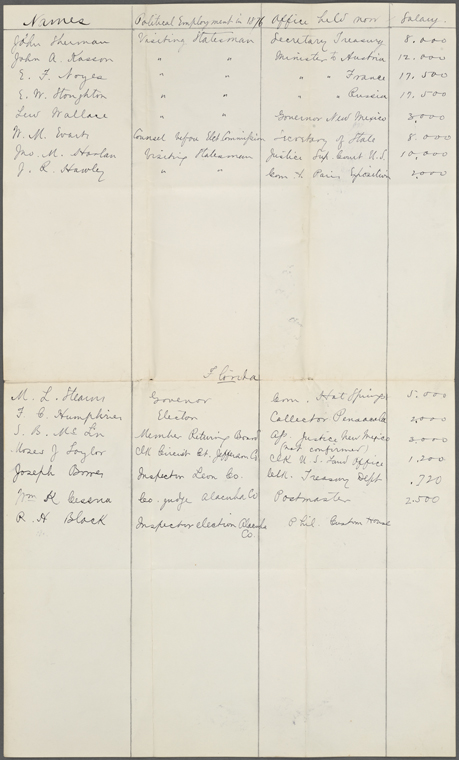 Names Political Employment in 1876 Office held now Salary.
John Sherman Visiting Statesman Secretary Treasury 8.000
John A. Kasson " " Minister to Austria 12.000
E. F. Noyes " " " " France 17.500
E. W. Stoughton " " " " Russia 17.500
Lew Wallace " " Governor New Mexico 3,000
W. M. Evarts Counsel before Elct Commission Secretary of State 8.000
Jno. M. Harlan Visiting Statesman Justice Sup. Court U.S. 10,000
J. R. Hawley " " Com to Paris Exposition 2,000
Florida
M. L. Stearns Governor Com. Hot Springs 5.000
F. C. Humphries Elector Collector Pensacola 2,000
S. B. McLin Member Returning Board Ap. Justice New Mexico 3,000
(not confirmed)
Moses J. Taylor Clk Circuit Ct. Jefferson Co. Clk U.S. Land Office 1.200
Joseph Bowes Inspector Leon Co. Clk. Treasury Dept .720
Wm K Cessna Co. judge Alachua Co Postmaster 2.500
R. H Black Inspector election Alachua Co. Phil. Custom House